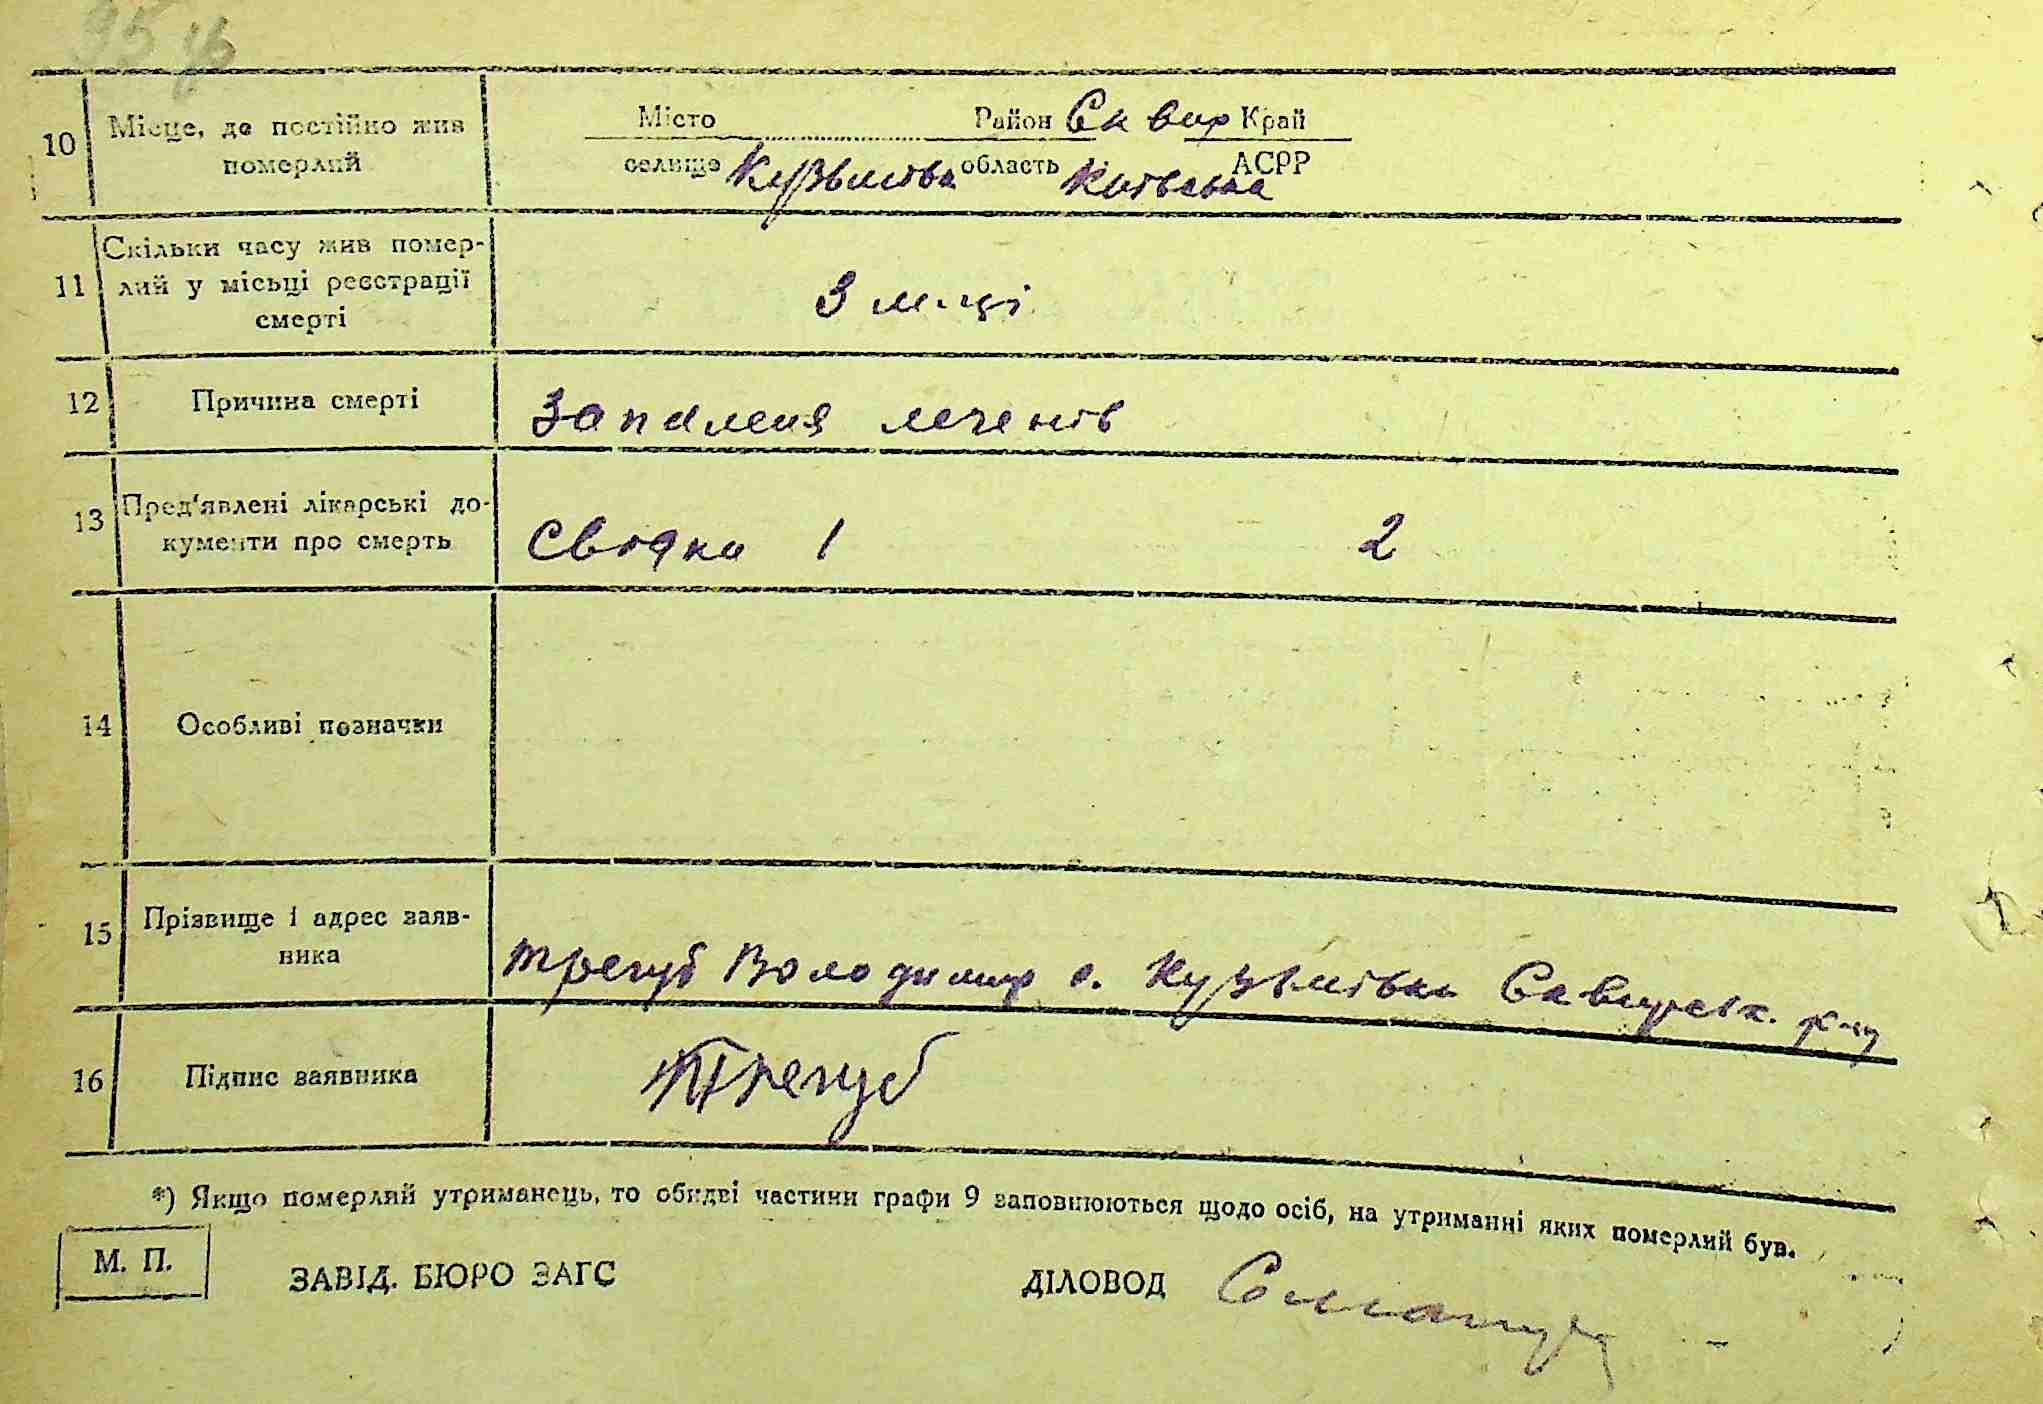 95
10 Місце, де постійно жив померлий
Місто Район Сквир Край
селище Кузьмівка область Київська АСРР
11 Скільки часу жив помер-
лий у місьці реєстрації
смерті
3 м-ці
12 Причина смерті
Запаленя легенів
13 Пред'явлені лікарські до-
кументи про смерть
Сводка 1 2
14 Особливі позначки
15 Прізвище і адрес заяв-
ника
Трегуб Володимир с. Кузьмівка Сквирськ. р-ну
16 Підпис заявника
Трегуб
*) Якщо померлий утриманець, то обидві частини графи 9 заповнюються щодо осіб, на утриманні яких померлий був.
М. П.
ЗАВІД. БЮРО ЗАГС
ДІЛОВОД